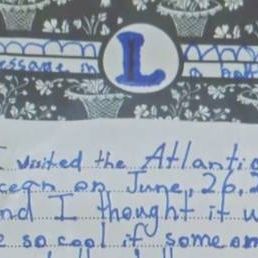 L
essage in a bott
I visited the Atlantic
cean on June, 26, 2
nd I thought it w
e so cool if someon